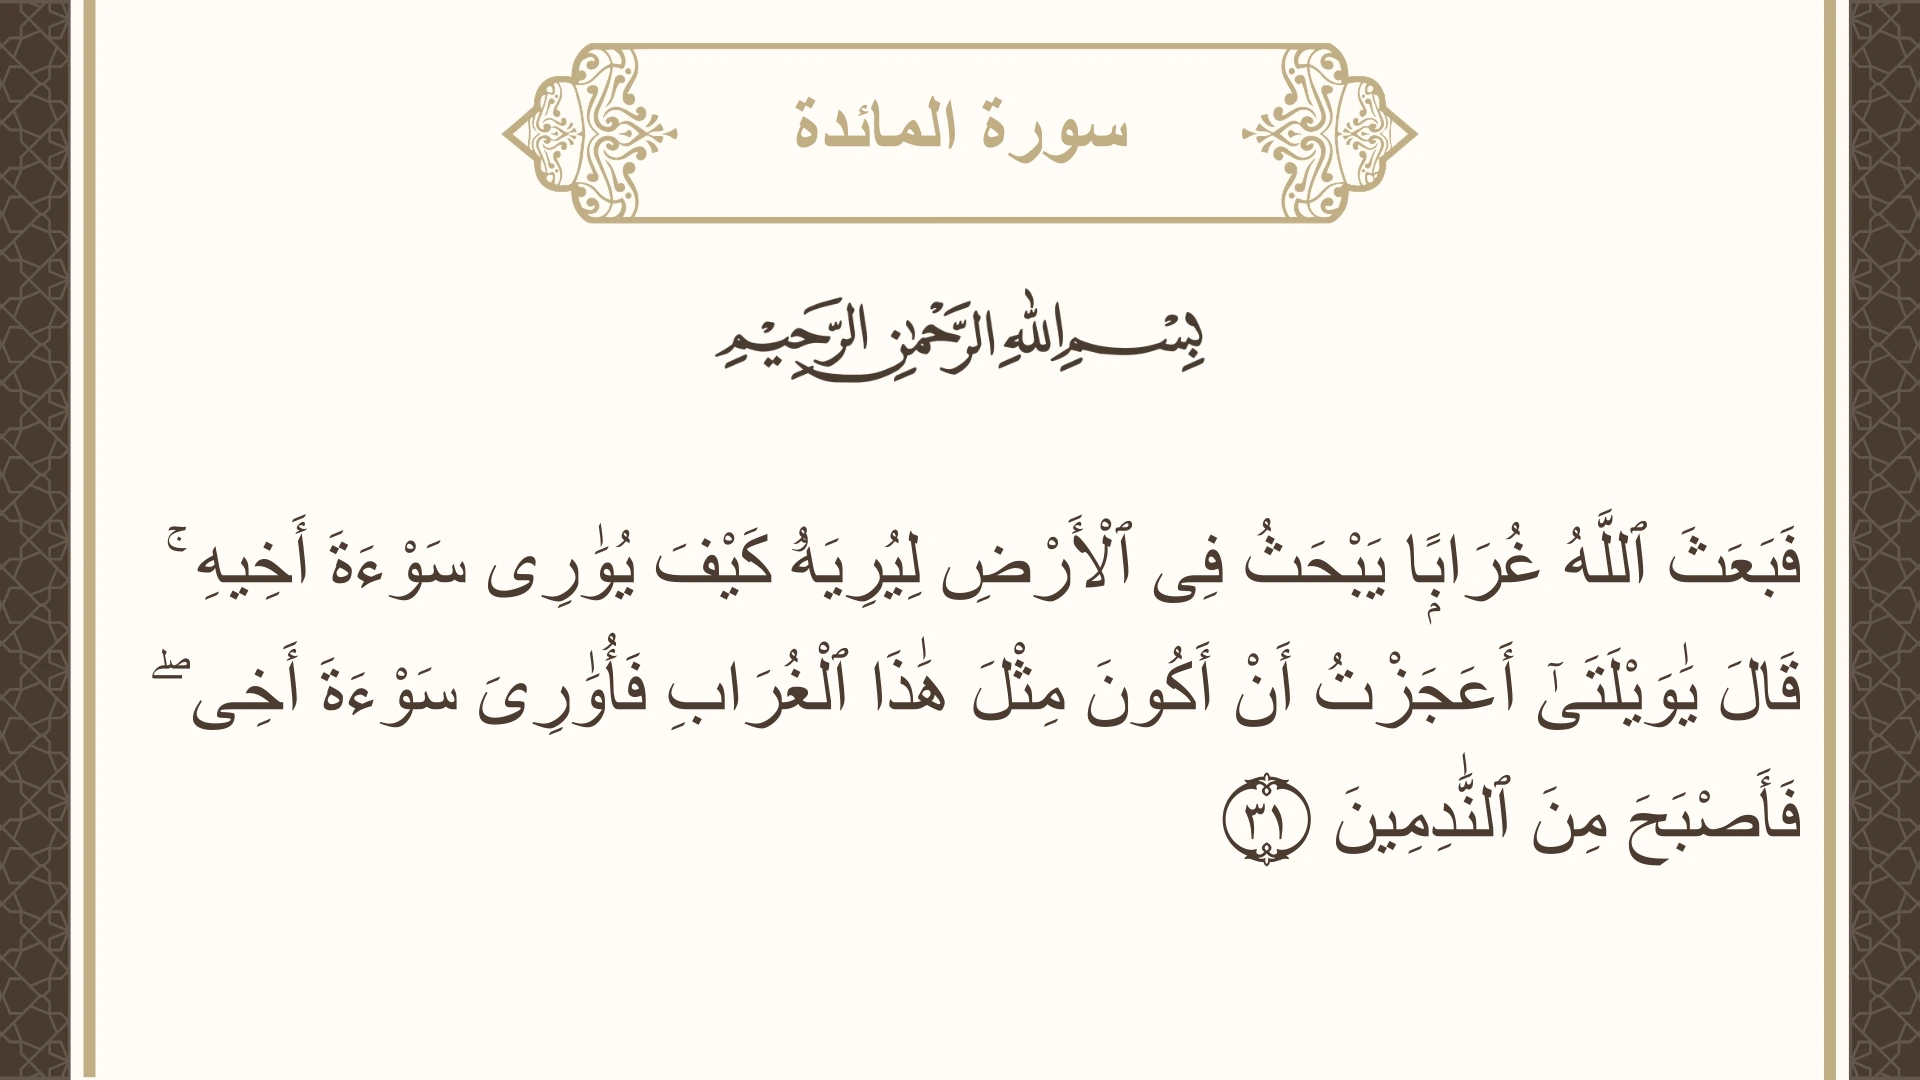 سورة المائدة
بِسْمِ اللهِ الرَّحْمٰنِ الرَّحِيْمِ
فَبَعَثَ ٱللَّهُ غُرَابًۭا يَبْحَثُ فِى ٱلْأَرْضِ لِيُرِيَهُۥ كَيْفَ يُوَٰرِى سَوْءَةَ أَخِيهِ ۚ
قَالَ يَٰوَيْلَتَىٰٓ أَعَجَزْتُ أَنْ أَكُونَ مِثْلَ هَٰذَا ٱلْغُرَابِ فَأُوَٰرِىَ سَوْءَةَ أَخِى ۖ
فَأَصْبَحَ مِنَ ٱلنَّٰدِمِينَ ٣١